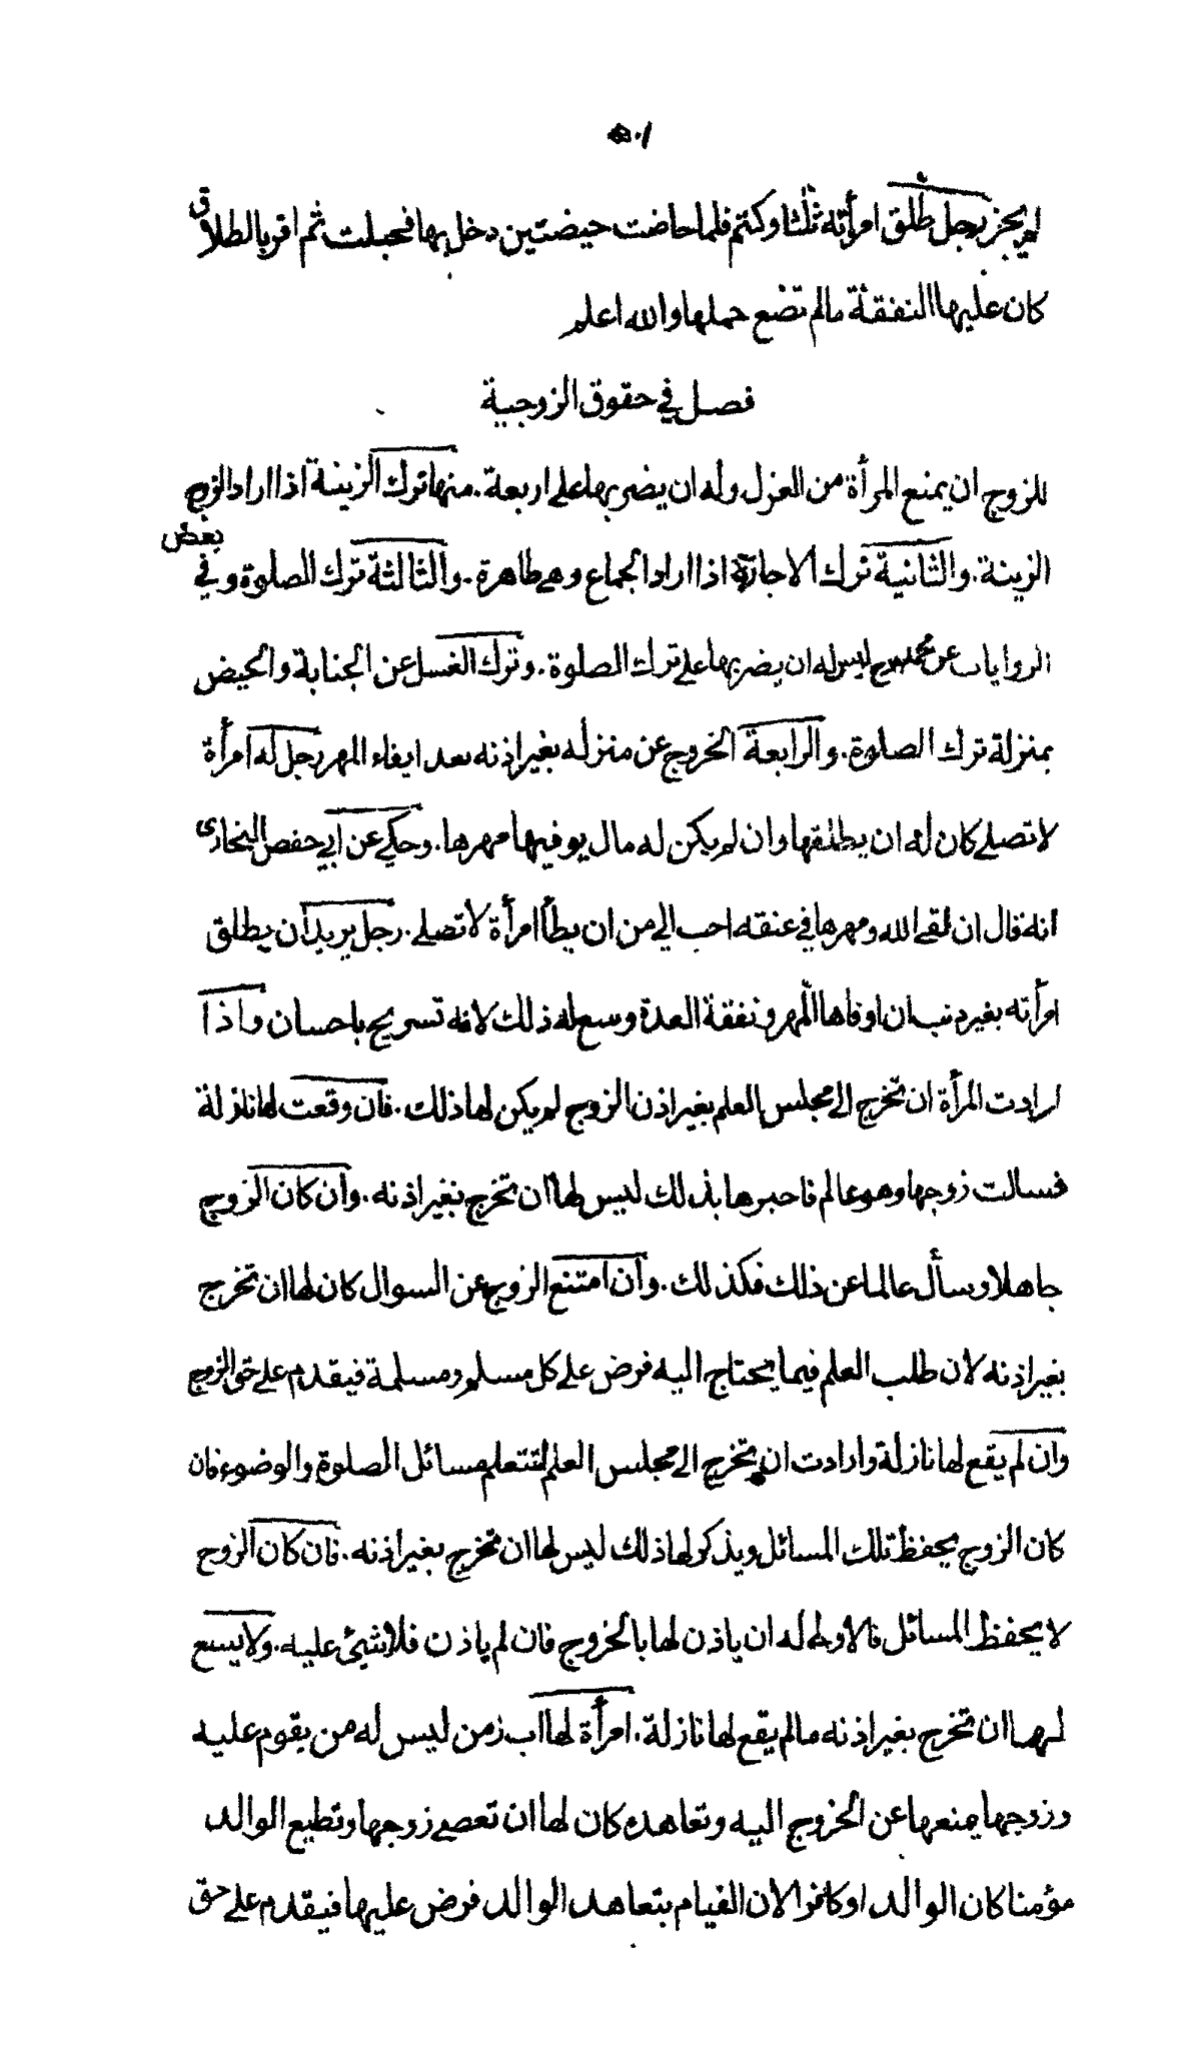 ٥٠١
لم يجز رجل طلق امرأته ثلثا وكتم فلما حاضت حيضتين دخل بها فحبلت ثم اقر بالطلاق
كان عليها النفقة مالم تضع حملها والله اعلم
فصل في حقوق الزوجية
للزوج ان يمنع المرأة من الغزل وله ان يضربها على اربعة. منها ترك الزينة اذا اراد الزوج
الزينة. والثانية ترك الاجازة اذا اراد الجماع وهي طاهرة. والثالثة ترك الصلوة وفي بعض
الروايات عن محمد رح ليس له ان يضربها على ترك الصلوة. وترك الغسل عن الجنابة والحيض
بمنزلة ترك الصلوة. والرابعة الخروج عن منزله بغير اذنه بعد ايفاء المهر رجل له امرأة
لا تصلي كان له ان يطلقها وان لم يكن له مال يوفيها مهرها. وحكي عن ابي حفص البخارى
انه قال ان لقى الله ومهرها في عنقه احب الي من ان يطأ امرأة لا تصلي. رجل يريد ان يطلق
امرأته بغير ذنب ان اوفاها المهر ونفقة العدة وسع له ذلك لانه تسريح باحسان واذا
ارادت المرأة ان تخرج الى مجلس العلم بغير اذن الزوج لم يكن لها ذلك. فان وقعت لها نازلة
فسالت زوجها وهو عالم فاخبرها بذلك ليس لها ان تخرج بغير اذنه. وان كان الزوج
جاهلا وسأل عالما عن ذلك فكذلك. وان امتنع الزوج عن السوال كان لها ان تخرج
بغير اذنه لان طلب العلم فيما يحتاج اليه فرض على كل مسلم ومسلمة فيقدم على حق الزوج
وان لم يقع لها نازلة وارادت ان تخرج الى مجلس العلم لتتعلم مسائل الصلوة والوضوء فان
كان الزوج يحفظ تلك المسائل ويذكر لها ذلك ليس لها ان تخرج بغير اذنه. فان كان الزوج
لا يحفظ المسائل فالاولى له ان ياذن لها بالخروج فان لم ياذن فلا شيئ عليه. ولا يسع
لها ان تخرج بغير اذنه مالم يقع لها نازلة. امرأة لها اب زمن ليس له من يقوم عليه
وزوجها يمنعها عن الخروج اليه وتعاهده كان لها ان تعصي زوجها وتطيع الوالد
مؤمنا كان الوالد او كافرا لان القيام بتعاهد الوالد فرض عليها فيقدم على حق